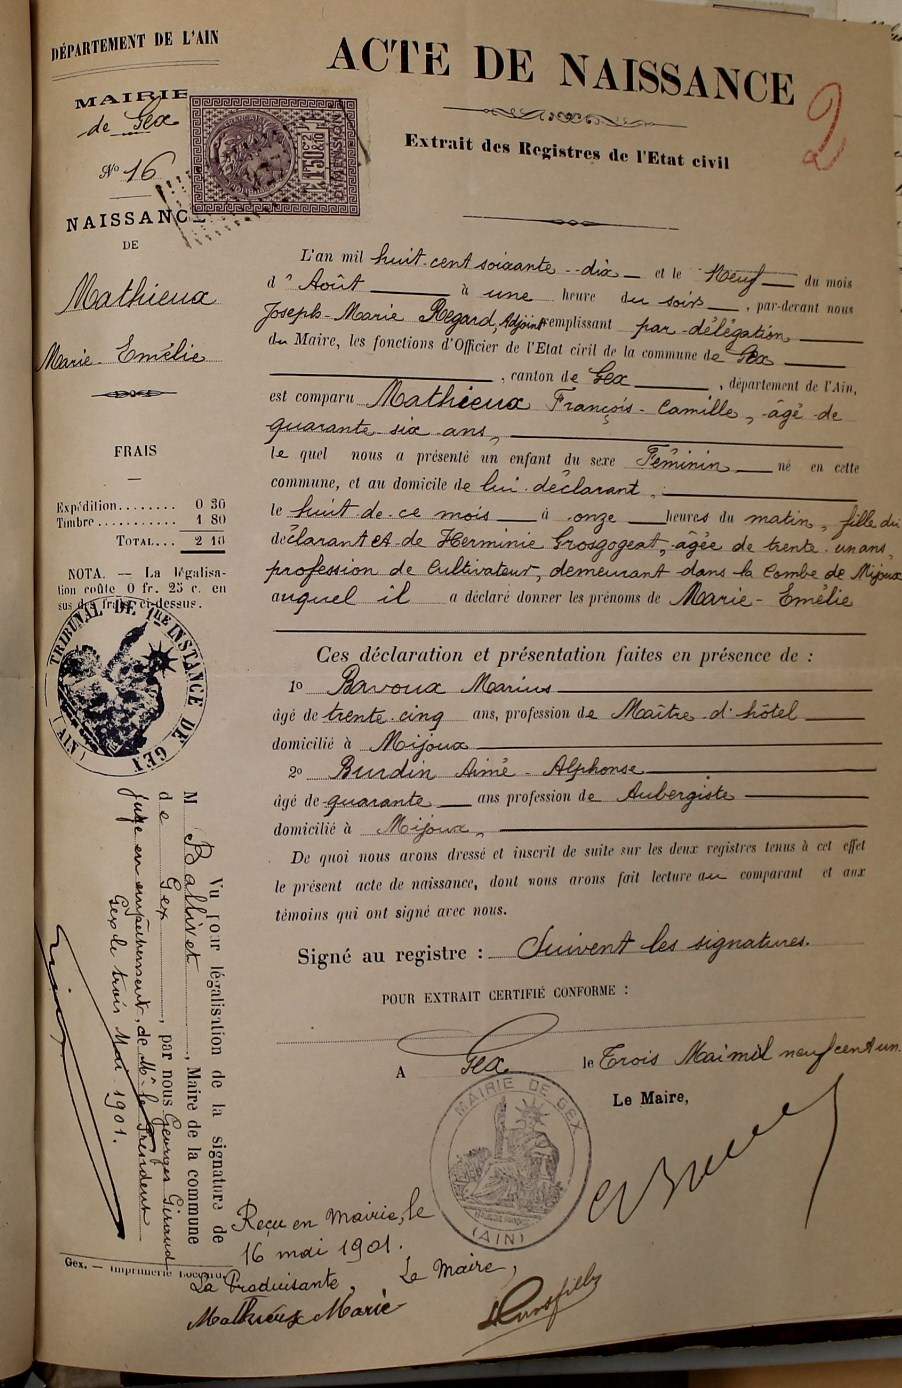 DÉPARTEMENT DE L'AIN
MAIRIE
de Gex
N° 16
NAISSANC
DE
Mathieux
Marie-Emélie
FRAIS
Expédition........ 0 30
Timbre........... 1 80
TOTAL... 2 10
NOTA. — La légalisa-
tion coûte 0 fr. 25 c. en
sus des frais ci-dessus.
TRIBUNAL DE 1re INSTANCE DE GEX
(AIN)
Vu pour légalisation de la signature de
M Ballivet, Maire de la commune
de Gex, par nous Georges Giraud
juge en empêchement de Mr le Président
Gex le trois Mai 1901.
Gex. — Imprimerie
ACTE DE NAISSANCE
2
Extrait des Registres de l'Etat civil
DIMENSION
L'an mil huit cent soixante-dix et le Neuf du mois
d'Août à une heure du soir, par-devant nous
Joseph-Marie Regard, Adjoint remplissant par délégation
du Maire, les fonctions d'Officier de l'Etat civil de la commune de Gex
, canton de Gex, département de l'Ain,
est comparu Mathieux François-Camille, âgé de
quarante-six ans,
le quel nous a présenté un enfant du sexe Féminin né en cette
commune, et au domicile de lui déclarant,
le huit de ce mois à onze heures du matin, fille du
déclarant et de Herminie Grosgogeat, âgée de trente-un ans,
profession de Cultivateur, demeurant dans la Combe de Mijoux
auquel il a déclaré donner les prénoms de Marie-Emélie
Ces déclaration et présentation faites en présence de :
1° Bavoux Marius
âgé de trente-cinq ans, profession de Maître d'hôtel
domicilié à Mijoux
2° Burdin Aimé-Alphonse
âgé de quarante ans profession de Aubergiste
domicilié à Mijoux,
De quoi nous avons dressé et inscrit de suite sur les deux registres tenus à cet effet
le présent acte de naissance, dont nous avons fait lecture au comparant et aux
témoins qui ont signé avec nous.
Signé au registre : Suivent les signatures.
POUR EXTRAIT CERTIFIÉ CONFORME :
A Gex le Trois Mai mil neuf cent un
Le Maire,
MAIRIE DE GEX
(AIN)
Reçu en Mairie, le
16 mai 1901.
La Produisante, Le Maire,
Mathieux Marie